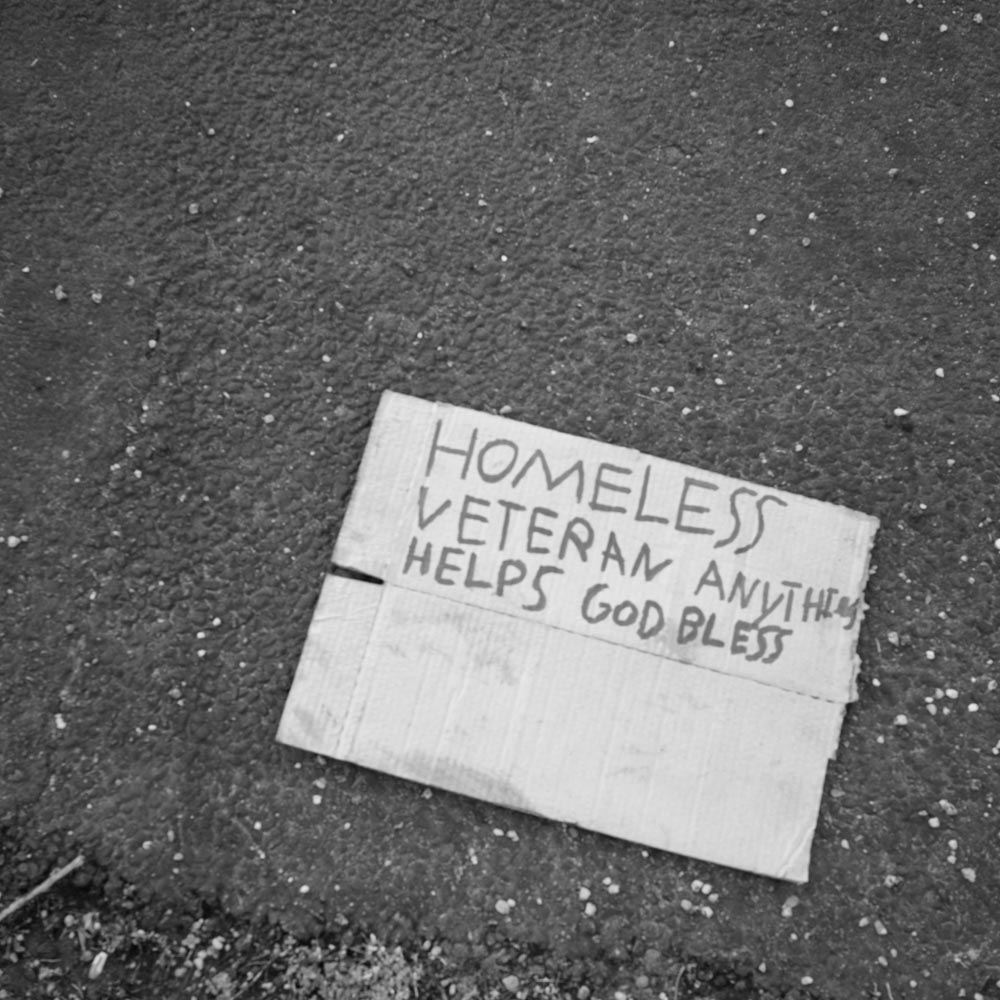 HOMELESS
VETERAN ANYTHING
HELPS GOD BLESS